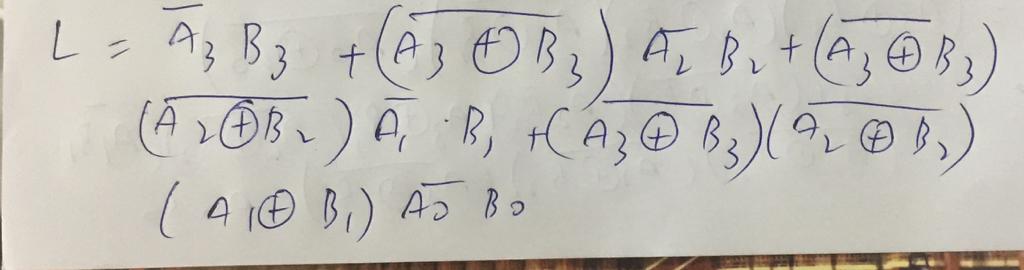 L = A̅₃ B₃ + (\overline{A₃ ⊕ B₃}) A̅₂ B₂ + (\overline{A₃ ⊕ B₃})
(\overline{A₂ ⊕ B₂}) A̅₁ · B₁ + (\overline{A₃ ⊕ B₃})(\overline{A₂ ⊕ B₂})
(A₁ ⊕ B₁) A̅₀ B₀